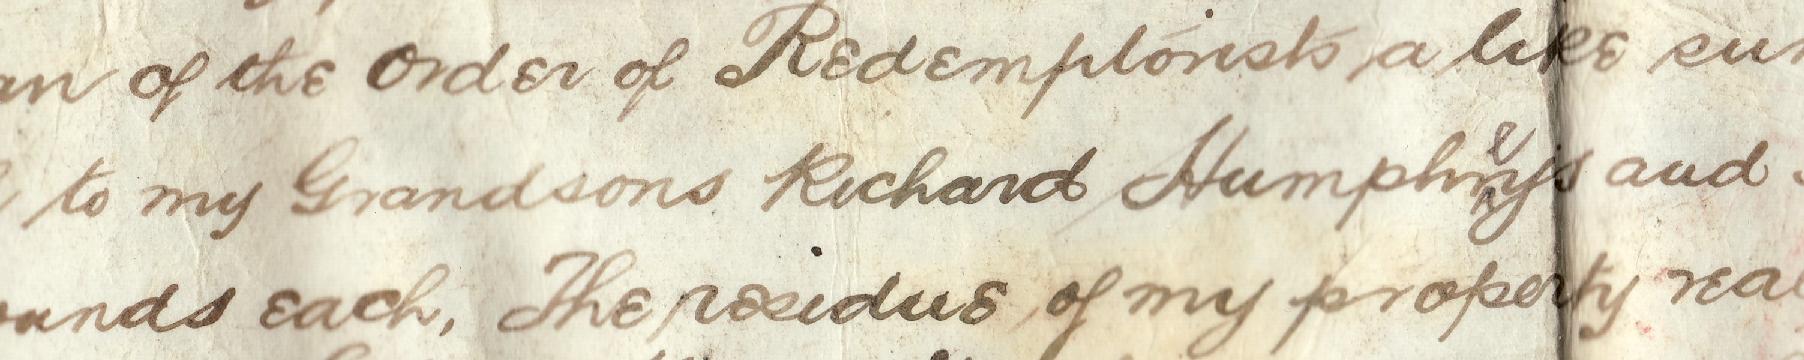 an of the Order of Redemptorists a like sum
to my Grandsons Richard Humphreys and
ounds each, The residue of my property real